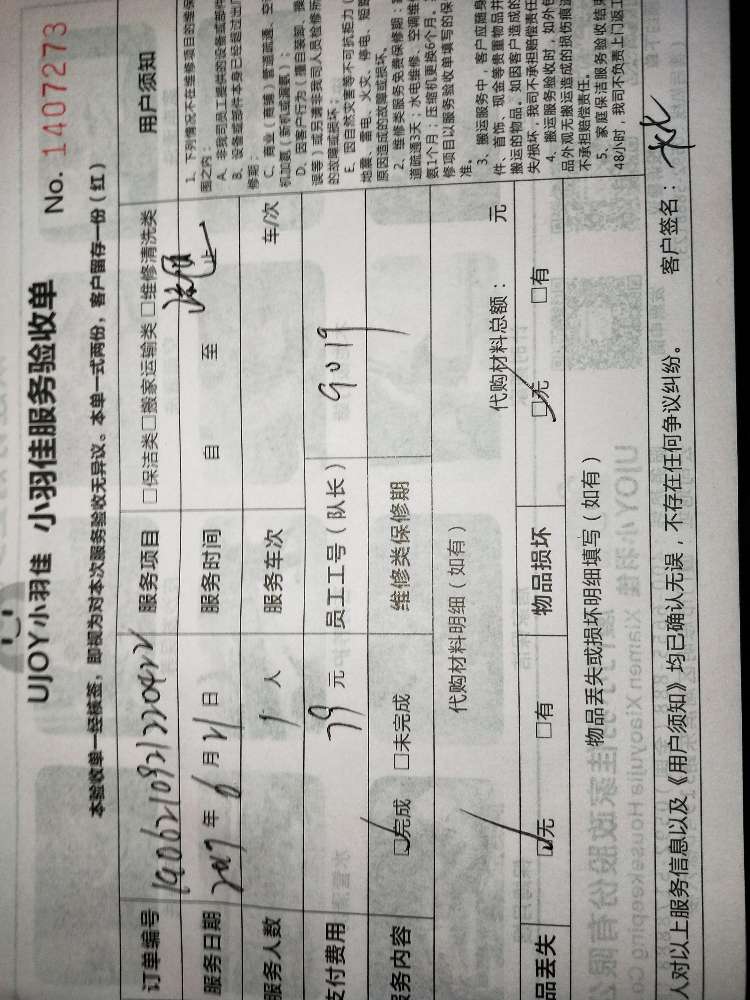 UJOY小羽佳 小羽佳服务验收单 No. 1407273
本验收单一经核签，即视为对本次服务验收无异议。本单一式两份，客户留存一份（红）
订单编号 服务项目 □保洁类□搬家运输类 □维修清洗类 用户须知
服务日期 2019 年 6 月 21 日 服务时间 自 至 止
服务人数 1 人 服务车次 车/次
支付费用 79 元 员工工号（队长） 9019
服务内容 □完成 □未完成 维修类保修期
代购材料明细（如有） 代购材料总额： 元
品丢失 □无 □有 物品损坏 □无 □有
物品丢失或损坏明细填写（如有）
人对以上服务信息以及《用户须知》均已确认无误，不存在任何争议纠纷。 客户签名：
1、下列情况不在维修项目的维保
围之内：
A、非我司员工提供的设备或部件
B、设备或部件本身已经超过出厂
修期；
C、商业（商铺）管道疏通、空
机加氨（新机或漏氨）；
D、因客户行为（擅自装卸、操
误等）或另请非我司人员检修所
的故障或损坏；
E、因自然灾害等不可抗拒力（
地震、雷电、火灾、停电、短路
原因造成的故障或损坏。
2、维修类服务免费保修期：
道疏通3天；水电维修、空调维
氨1个月；压缩机更换6个月。
修项目以服务验收单填写的保
准。
3、搬运服务中，客户应随身
件、首饰、现金等贵重物品并
搬运的物品。如因客户造成的
失/损坏，我司不承担赔偿责任
4、搬运服务验收时，如外包
品外观无搬运造成的损伤痕迹
不承担赔偿责任。
5、家庭保洁服务验收结束
48小时，我司不负责上门返工